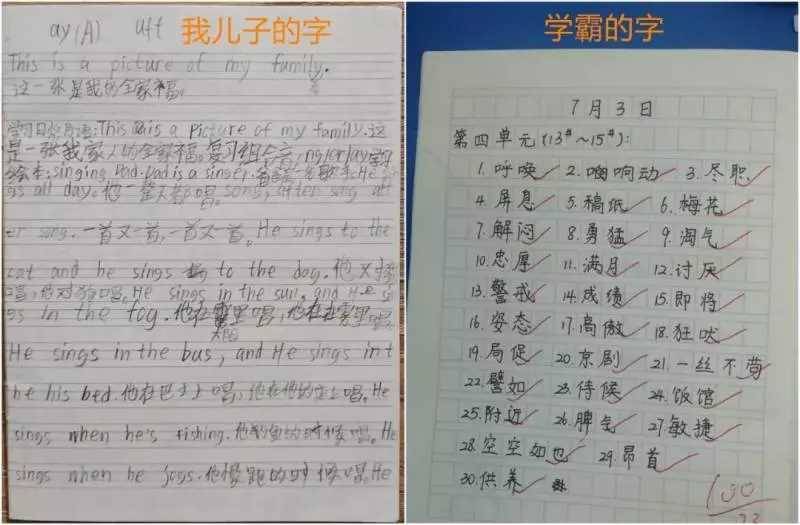 我儿子的字
ay(A) uft
This is a picture of my family.
这一张是我的全家福。
学习日签自语:This is a picture of my family.这
是一张我家人的全家福。复习组合音,ng/or/ay学习
绘本:singing Dad.Dad is a singer.爸爸是一名歌手.He
gs all day.他一整天都唱.song, often song aft
er song.一首又一首,一首又一首。He sings to the
cat and he sings to the dog.他对
唱,他对狗唱。He sings in the sun, and He si
gs in the fog.他在雾里唱,他在雾里唱
太阳
He sings in the bus, and He sings in t
he his bed.他在巴士上唱,他在他的床上唱。He
sings when he's fishing.他钓鱼的时候唱。He
sings when he jogs.他慢跑的时候唱。He
学霸的字
7月3日
第四单元(13#~15#):
1.呼唤 2.响动 3.尽职
4.屏息 5.稿纸 6.梅花
7.解闷 8.勇猛 9.淘气
10.忠厚 11.满月 12.讨厌
13.警戒 14.成绩 15.即将
16.姿态 17.高傲 18.狂吠
19.局促 20.京剧 21.一丝不苟
22.譬如 23.待候 24.饭馆
25.附近 26.脾气 27.敏捷
28.空空如也 29.昂首
30.供养
100